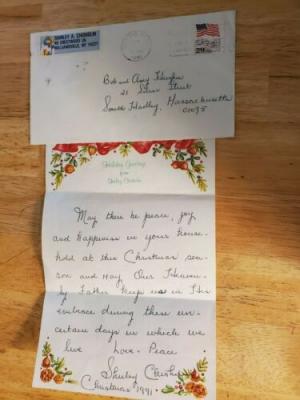 SHIRLEY A.
WILLIAMSVILLE, NY 14221
Bob and Amy
21 Street
South Hadley, Massachusetts
01075
Holiday Greetings
from
May there be peace, joy
and happiness in your house-
hold at this Christmas sea-
son and may Our Heaven-
ly Father keep us in His
embrace during these un-
certain days in which we
live Love - Peace
Shirley
Christmas 1991